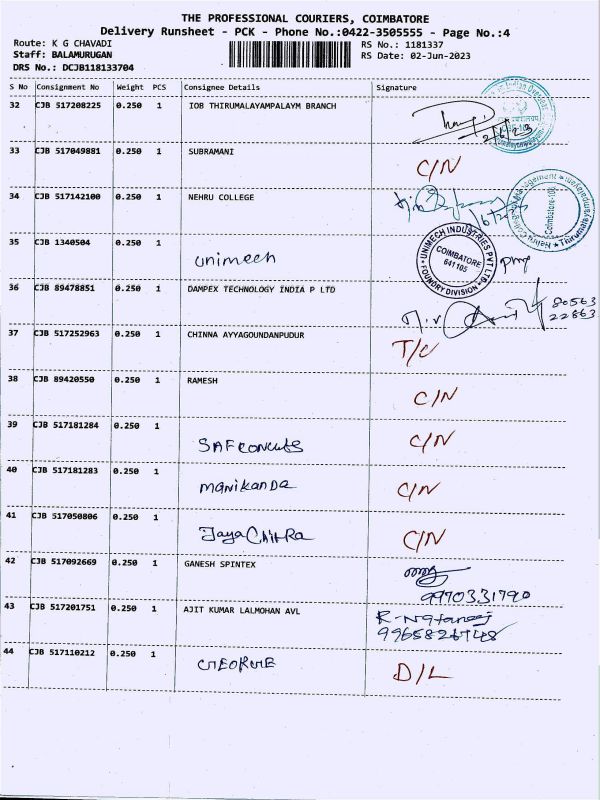 THE PROFESSIONAL COURIERS, COIMBATORE
Delivery Runsheet - PCK - Phone No.:0422-3505555 - Page No.:4
Route: K G CHAVADI RS No.: 1181337
Staff: BALAMURUGAN RS Date: 02-Jun-2023
DRS No.: DCJB118133704
S No Consignment No Weight PCS Consignee Details Signature
32 CJB 517208225 0.250 1 IOB THIRUMALAYAMPALAYM BRANCH
2/6/23
33 CJB 517049881 0.250 1 SUBRAMANI C/N
34 CJB 517142100 0.250 1 NEHRU COLLEGE
Coimbatore-105
35 CJB 1340504 0.250 1 Unimech
UNIMECH INDUSTRIES PVT LTD
COIMBATORE
641105
FOUNDRY DIVISION
36 CJB 89478851 0.250 1 DAMPEX TECHNOLOGY INDIA P LTD
80563
22863
37 CJB 517252963 0.250 1 CHINNA AYYAGOUNDANPUDUR
38 CJB 89420550 0.250 1 RAMESH C/N
39 CJB 517181284 0.250 1 C/N
40 CJB 517181283 0.250 1 Manikanda C/N
41 CJB 517050806 0.250 1 JayaChitRa C/N
42 CJB 517092669 0.250 1 GANESH SPINTEX
9970331790
43 CJB 517201751 0.250 1 AJIT KUMAR LALMOHAN AVL
9965826748
44 CJB 517110212 0.250 1 GEORGE D/L